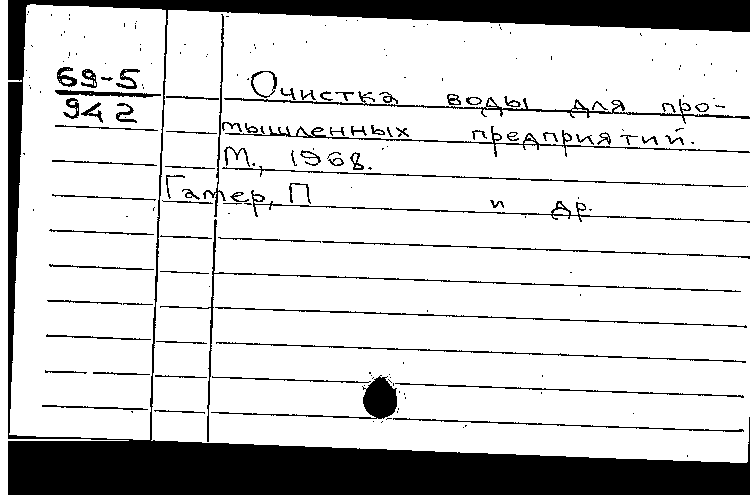 69-5
942
Очистка воды для про-
мышленных предприятий.
М., 1968.
Гатер, П и др.